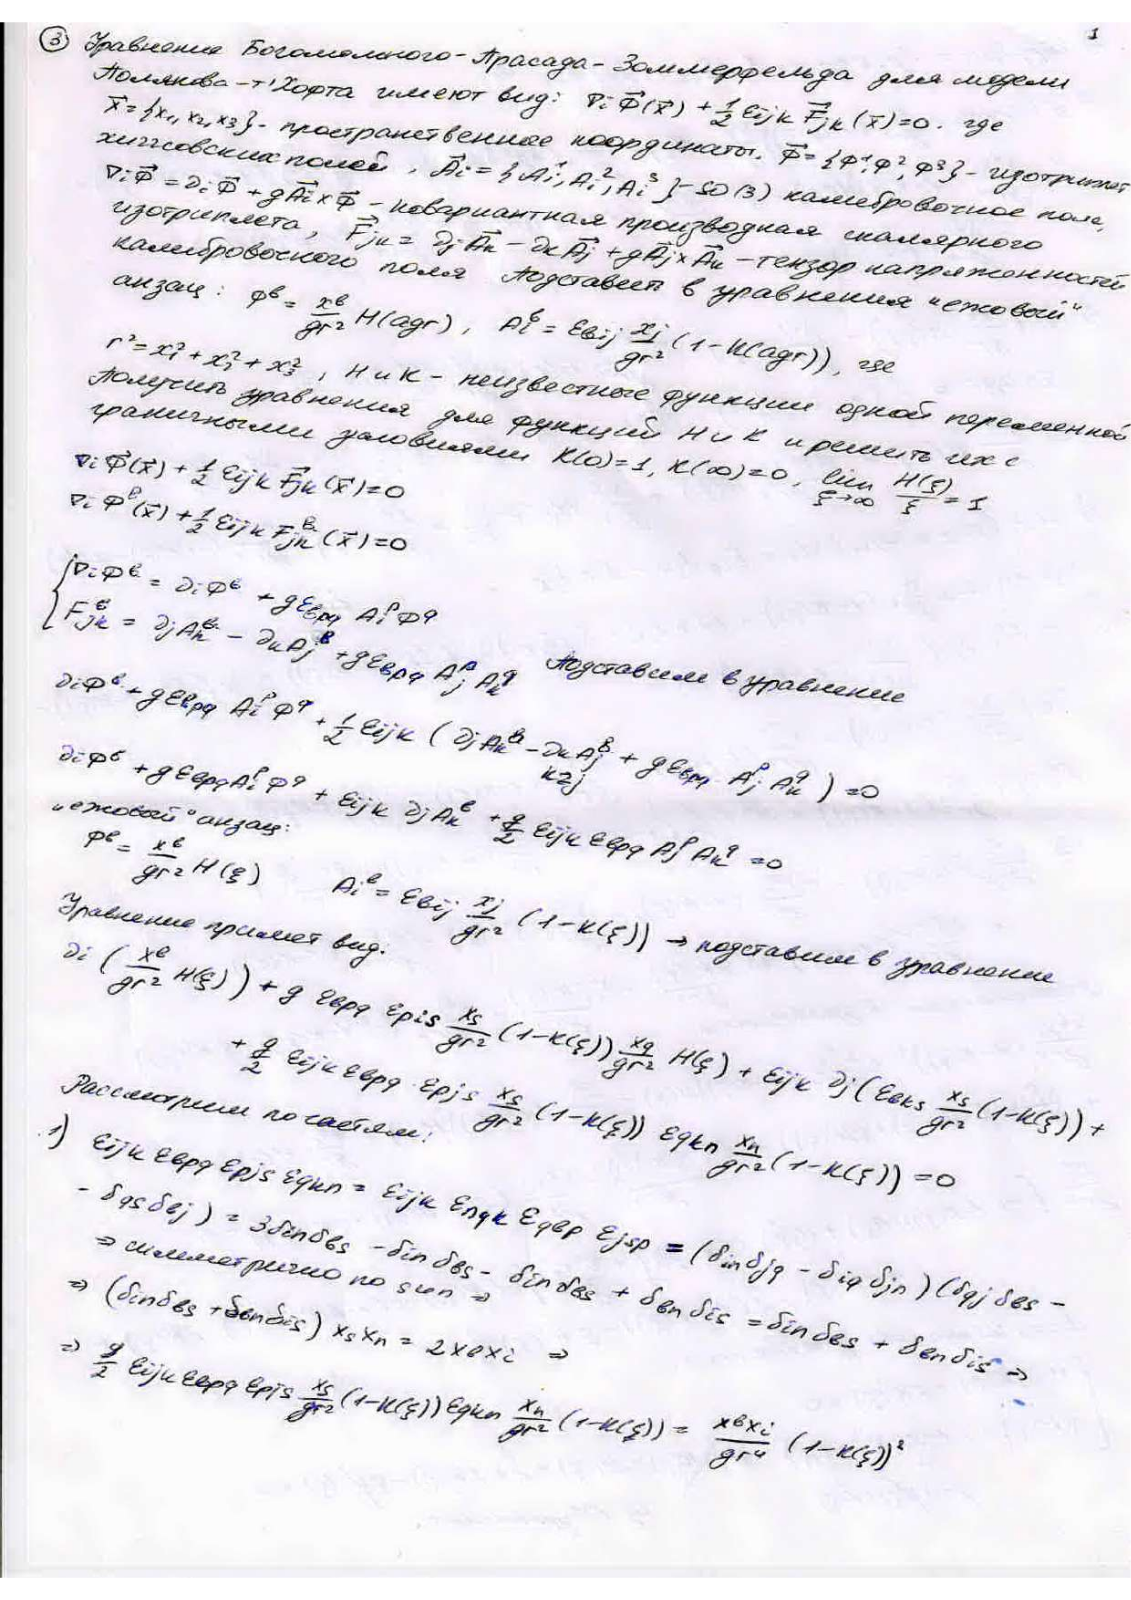 1
③ Уравнение Богомольного-Прасада-Зоммерфельда для модели
Полякова-т'Хофта имеют вид: ∇i Φ⃗(x⃗) + 1/2 εijk F⃗jk(x⃗)=0. где
x⃗={x1, x2, x3} - пространственные координаты. Φ⃗={Φ¹,Φ²,Φ³} - изотриплет
хиггсовских полей, A⃗i={Ai¹, Ai², Ai³} - SO(3) калибровочное поле,
∇iΦ⃗ = ∂iΦ⃗ + gA⃗i×Φ⃗ - ковариантная производная скалярного
изотриплета, F⃗jk = ∂jA⃗k - ∂kA⃗j + gA⃗j×A⃗k - тензор напряженностей
калибровочного поля Подставить в уравнения "ежовый"
анзац: Φᵇ = xᵇ/gr² H(agr), Aiᵇ = εbij xj/gr² (1-K(agr)), где
r²=x1²+x2²+x3², H и K - неизвестные функции одной переменной
Получить уравнения для функций H и K и решить их с
граничными условиями K(0)=1, K(∞)=0, lim ξ→∞ H(ξ)/ξ = 1
∇iΦ⃗(x⃗) + 1/2 εijk F⃗jk(x⃗)=0
∇iΦᵇ(x⃗) + 1/2 εijk Fjkᵇ(x⃗)=0
{ ∇iΦᵇ = ∂iΦᵇ + gεbpq Aiᵖ Φ^q
Fjkᵇ = ∂jAkᵇ - ∂kAjᵇ + gεbpq Ajᵖ Ak^q Подставим в уравнение
∂iΦᵇ + gεbpq Aiᵖ Φ^q + 1/2 εijk (∂jAkᵇ - ∂kAjᵇ + gεbpq Ajᵖ Ak^q) =0
k⇄j
∂iΦᵇ + gεbpq Aiᵖ Φ^q + εijk ∂jAkᵇ + g/2 εijk εbpq Ajᵖ Ak^q =0
"ежовый" анзац:
Φᵇ = xᵇ/gr² H(ξ) Aiᵇ = εbij xj/gr² (1-K(ξ)) → подставим в уравнение
Уравнение примет вид.
∂i (xᵇ/gr² H(ξ)) + g εbpq εpis xs/gr² (1-K(ξ)) xq/gr² H(ξ) + εijk ∂j (εbks xs/gr² (1-K(ξ)) +
+ g/2 εijk εbpq εpjs xs/gr² (1-K(ξ)) εqkn xn/gr² (1-K(ξ)) =0
Рассмотрим по частям:
1) εijk εbpq εpjs εqkn = εijk εnqk εqbp εjsp = (δin δjq - δiq δjn) (δqj δbs -
- δqs δbj) = 3δin δbs - δin δbs - δin δbs + δbn δis = δin δbs + δbn δis ⇒
⇒ симметрично по s и n ⇒
⇒ (δin δbs + δbn δis) xs xn = 2xb xi ⇒
⇒ g/2 εijk εbpq εpjs xs/gr² (1-K(ξ)) εqkn xn/gr² (1-K(ξ)) = xb xi/gr⁴ (1-K(ξ))²